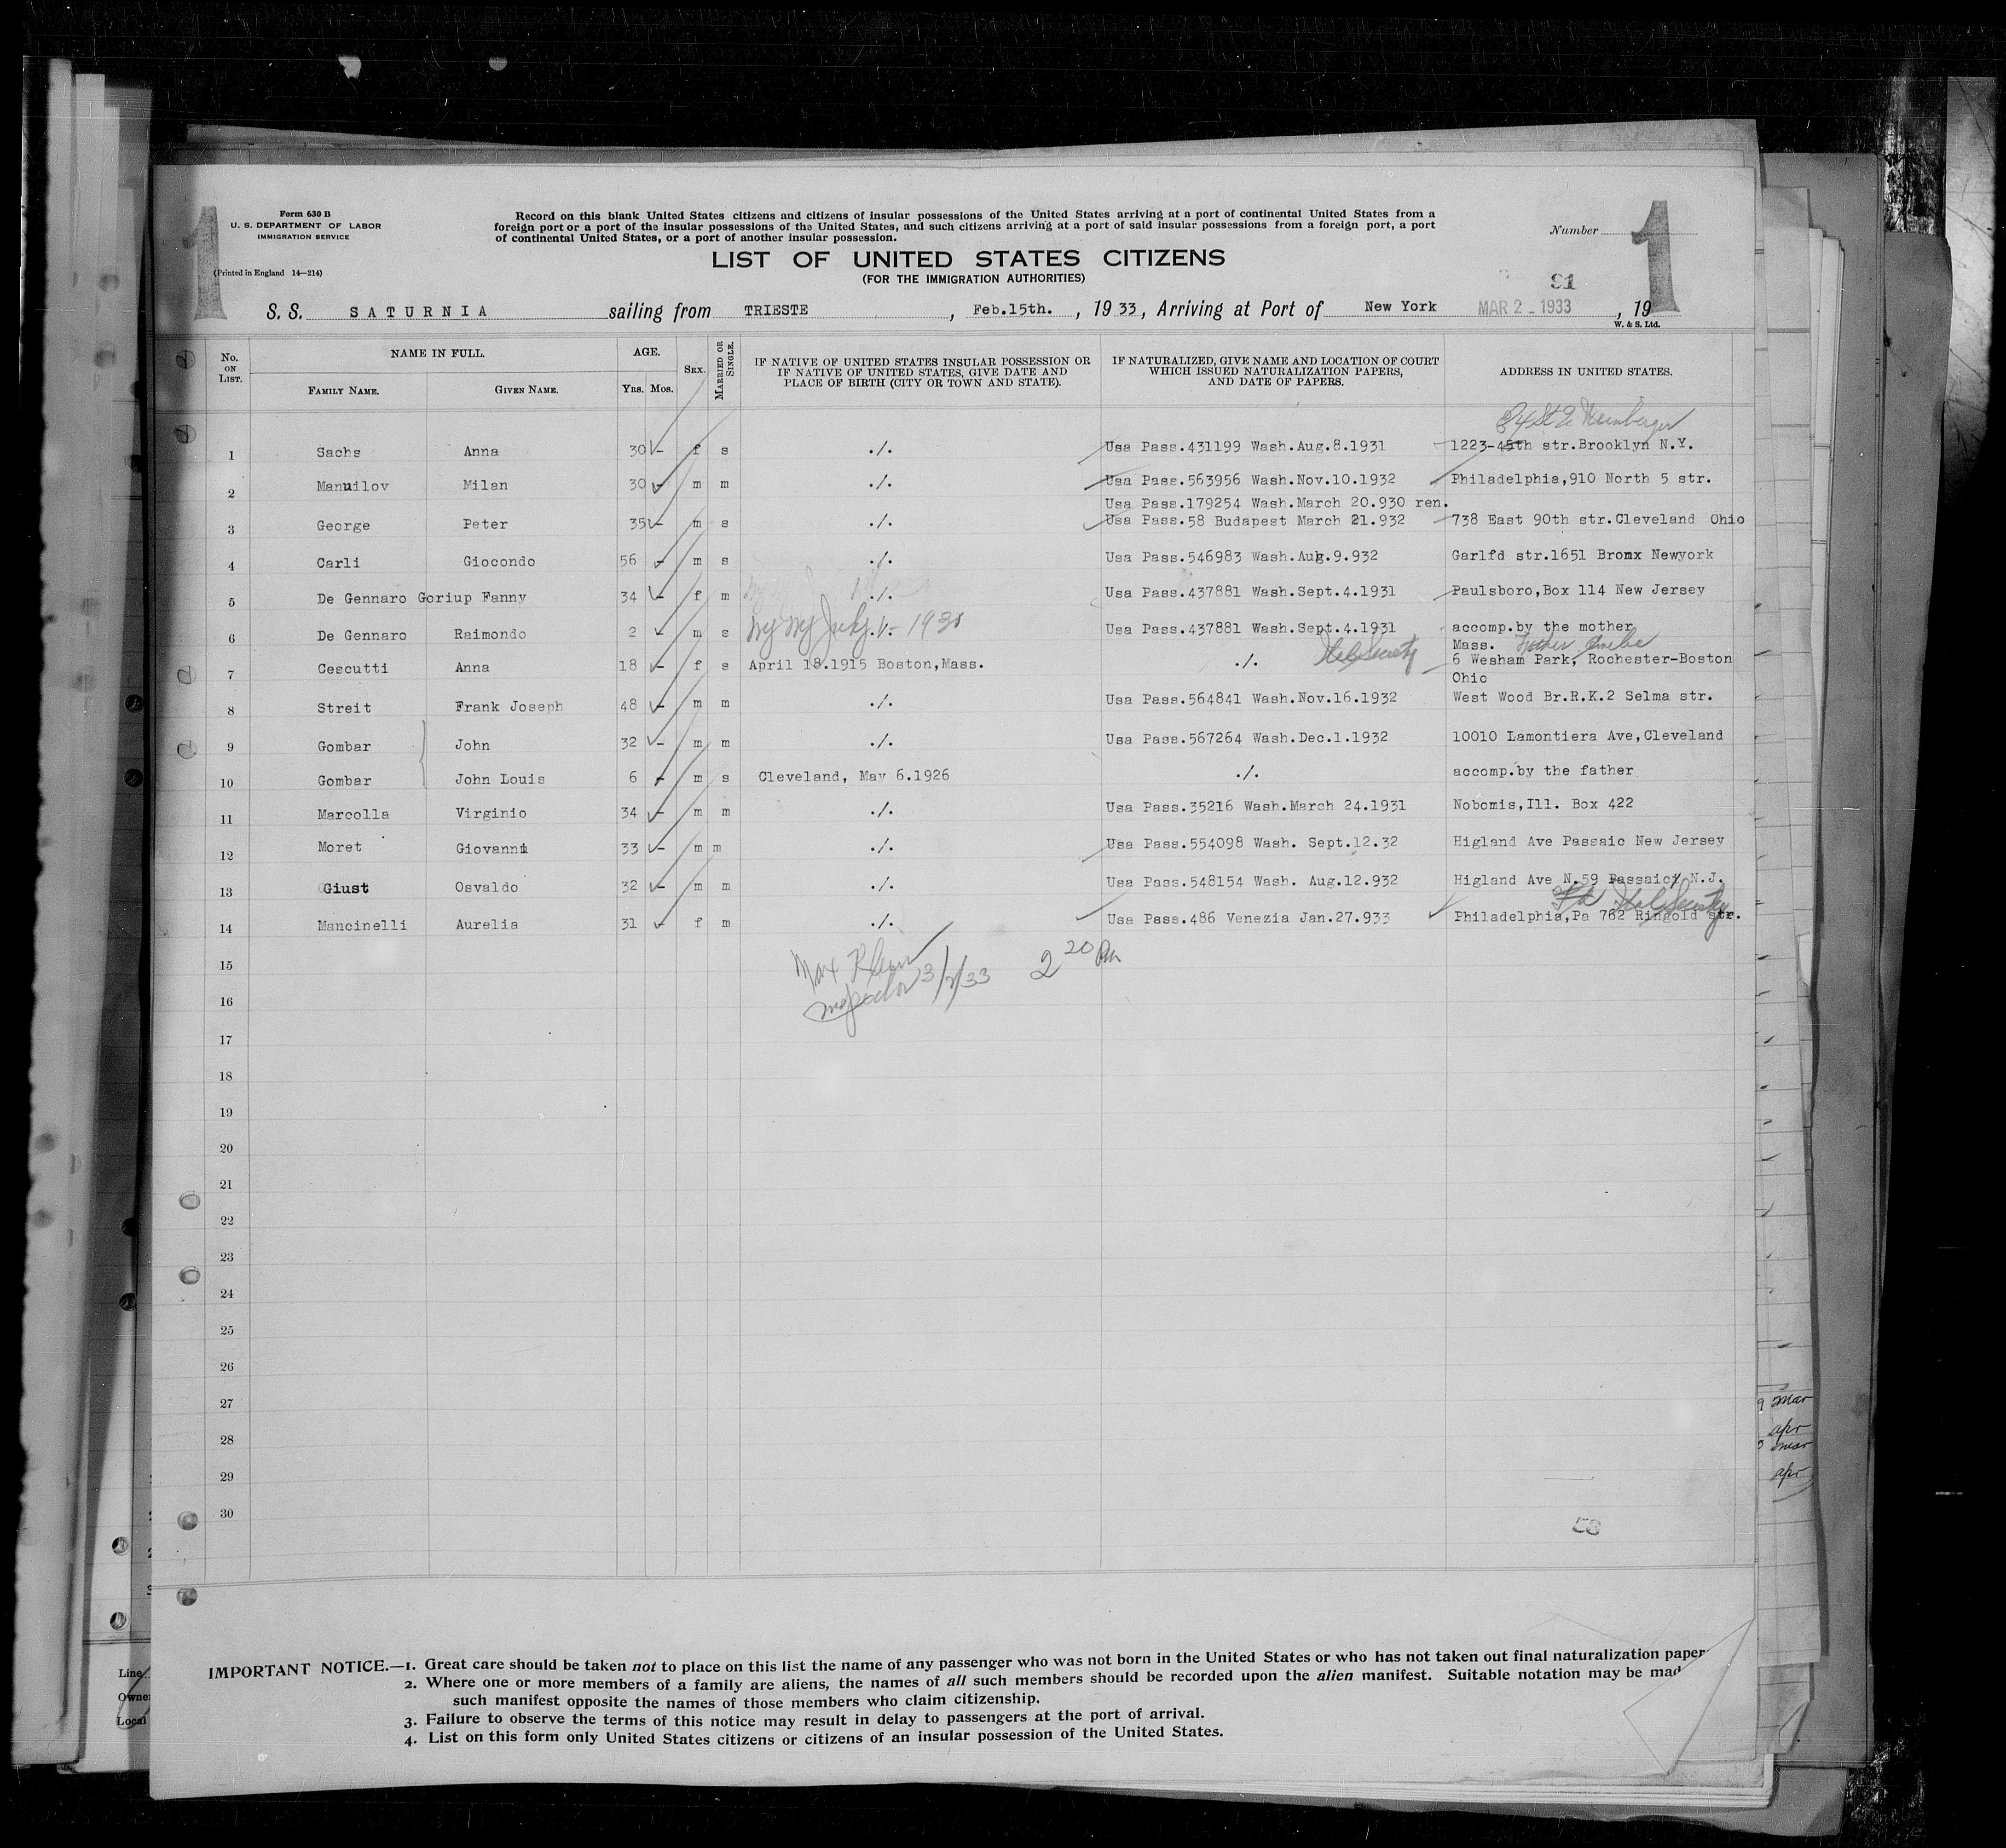 Form 630 B
U. S. DEPARTMENT OF LABOR
IMMIGRATION SERVICE
(Printed in England 14—214)
Record on this blank United States citizens and citizens of insular possessions of the United States arriving at a port of continental United States from a
foreign port or a port of the insular possessions of the United States, and such citizens arriving at a port of said insular possessions from a foreign port, a port
of continental United States, or a port of another insular possession.
Number
1 1
LIST OF UNITED STATES CITIZENS
(FOR THE IMMIGRATION AUTHORITIES)
91
S. S. SATURNIA sailing from TRIESTE, Feb.15th., 1933, Arriving at Port of New York MAR 2 - 1933, 19
W. & S. Ltd.
No. ON LIST. NAME IN FULL. FAMILY NAME. GIVEN NAME. AGE. YRS. MOS. SEX. MARRIED OR SINGLE. IF NATIVE OF UNITED STATES INSULAR POSSESSION OR IF NATIVE OF UNITED STATES, GIVE DATE AND PLACE OF BIRTH (CITY OR TOWN AND STATE). IF NATURALIZED, GIVE NAME AND LOCATION OF COURT WHICH ISSUED NATURALIZATION PAPERS, AND DATE OF PAPERS. ADDRESS IN UNITED STATES.
1 Sachs Anna 30 - f s ./. Usa Pass.431199 Wash.Aug.8.1931 1223-45th str.Brooklyn N.Y.
2 Manuilov Milan 30 - m m ./. Usa Pass.563956 Wash.Nov.10.1932 Philadelphia,910 North 5 str.
Usa Pass.179254 Wash.March 20.930 ren.
3 George Peter 35 - m s ./. Usa Pass.58 Budapest March 21.932 738 East 90th str.Cleveland Ohio
4 Carli Giocondo 56 - m s ./. Usa Pass.546983 Wash.Aug.9.932 Garlfd str.1651 Bronx Newyork
5 De Gennaro Goriup Fanny 34 - f m ./. Usa Pass.437881 Wash.Sept.4.1931 Paulsboro,Box 114 New Jersey
6 De Gennaro Raimondo 2 - m s NY NY July ./. 1930 Usa Pass.437881 Wash.Sept.4.1931 accomp.by the mother
Mass. Father
7 Cescutti Anna 18 - f s April 18.1915 Boston,Mass. ./. Ital Society 6 Wesham Park, Rochester-Boston
Ohio
8 Streit Frank Joseph 48 - m m ./. Usa Pass.564841 Wash.Nov.16.1932 West Wood Br.R.K.2 Selma str.
9 Gombar John 32 - m m ./. Usa Pass.567264 Wash.Dec.1.1932 10010 Lamontiera Ave,Cleveland
10 Gombar John Louis 6 - m s Cleveland, May 6.1926 ./. accomp.by the father
11 Marcolla Virginio 34 - m m ./. Usa Pass.35216 Wash.March 24.1931 Nobomis,Ill. Box 422
12 Moret Giovanni 33 - m m ./. Usa Pass.554098 Wash. Sept.12.32 Higland Ave Passaic New Jersey
13 Giust Osvaldo 32 - m m ./. Usa Pass.548154 Wash. Aug.12.932 Higland Ave N.59 Passaic N.J.
Ital Society
14 Mancinelli Aurelia 31 - f m ./. Usa Pass.486 Venezia Jan.27.933 Philadelphia,Pa 762 Ringold str.
15 Max Klein 2 20 Pm
16 Inspector 3/2/33
17
18
19
20
21
22
23
24
25
26
27
28
29
30
53
9 mar
apr
mar
apr
Line
Owner
Local
IMPORTANT NOTICE.—1. Great care should be taken not to place on this list the name of any passenger who was not born in the United States or who has not taken out final naturalization paper
2. Where one or more members of a family are aliens, the names of all such members should be recorded upon the alien manifest. Suitable notation may be mad
such manifest opposite the names of those members who claim citizenship.
3. Failure to observe the terms of this notice may result in delay to passengers at the port of arrival.
4. List on this form only United States citizens or citizens of an insular possession of the United States.